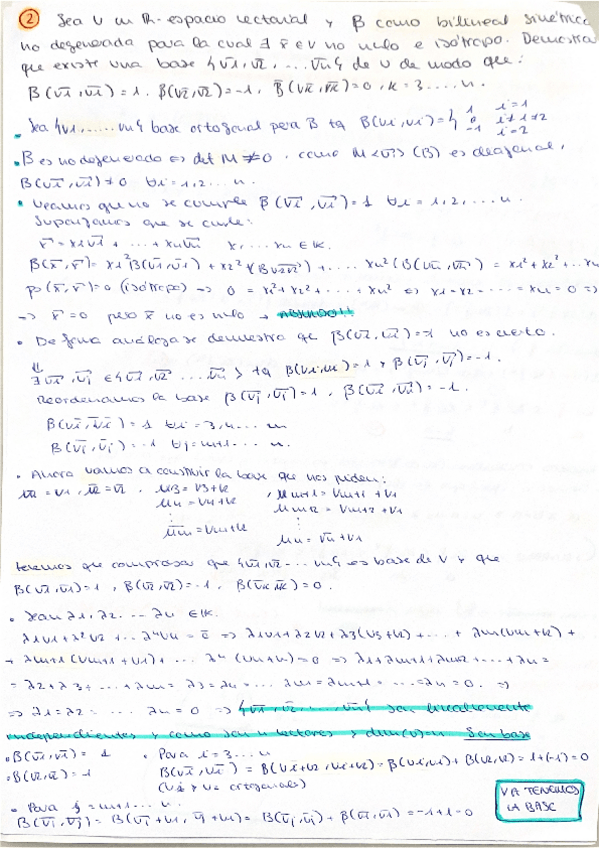 ② Sea V un R-espacio vectorial y β como bilineal simétrica
no degenerada para la cual ∃ x̄ ∈ V no nulo e isótropo. Demostrar
que existe una base {v̄1, v̄2, ... v̄n} de V de modo que:
β(v̄1,v̄1)=1, β(v̄2,v̄2)=-1, β(v̄k,v̄k)=0, k=3....n.
• Sea {v1,.....vn} base ortogonal para B tq B(vi,vi)={ 1 i=1
0 i≠1≠2
-1 i=2
• B es no degenerado ⇔ det M ≠ 0. como M (B) es diagonal,
B(v̄i,v̄i) ≠ 0 ∀i=1,2... n.
• Veamos que no se cumple β(v̄i,v̄i)=1 ∀i=1,2,.... n.
Supongamos que se cumple:
x̄ = x1v̄1 + ... + xnv̄n x1...xn ∈ K.
B(x̄,x̄) = x1²B(v̄1,v̄1) + x2²(B(v̄2,v̄2)) + .... xn²(B(v̄n,v̄n)) = x1²+x2²+...xn
β(x̄,x̄)=0 (isótropo) → 0 = x1²+x2²+....=xn² ⇔ x1=x2=....=xn=0 ⇒
⇒ x̄=0 pero x̄ no es nulo → ABSURDO!!
• De forma análoga se demuestra que β(v̄i,v̄i)=-1 no es cierto.
⇓
∃ v̄i, v̄j ∈ {v̄1,v̄2 ... v̄n} tq β(vi,vi)=1 y β(v̄j,v̄j)=-1.
Reordenamos la base β(v̄1,v̄1)=1, β(v̄2,v̄2)=-1.
B(v̄i,v̄i)=1 ∀i=3,4.... m
B(v̄j,v̄j)=-1 ∀j=m+1.... n.
• Ahora vamos a construir la base que nos piden:
ū1=v1, ū2=v̄2, u3=v3+v2 , um+1=vm+1+v1
u4=v4+v2 um+2=vm+2+v1
⋮ ⋮
ūm=vm+v2 un=v̄n+v1
tenemos que comprobar que {ū1,ū2,...ūn} es base de V y que
B(v̄1,v̄1)=1, β(v̄2,v̄2)=-1, β(v̄k,v̄k)=0.
• Sean λ1,λ2.... λn ∈ K.
λ1v1+λ2v2+...λnvn=0̄ ⇒ λ1v1+λ2v2+λ3(v3+v2)+...+λm(vm+v2)+
+ λm+1(vm+1+v1)+... λn(vn+v1)=0 ⇒ λ1+λm+1+λm+2+...+λn=
=λ2+λ3+...+λm=λ3=λ4=... λm=λm+1=....=λn=0. ⇒
⇒ λ1=λ2=... λn=0 ⇒ {v̄1,v̄2,.....v̄n} son linealmente
independientes y como son n vectores y dim(V)=n son base
• B(v̄1,v̄1)=1 • Para i=3...m
• B(v̄2,v̄2)=-1 B(v̄i,v̄i)=B(vi+v2,vi+v2)=β(vi,vi)+B(v2,v2)=1+(-1)=0
(vi y v2 ortogonales)
• Para j=m+1... n.
B(v̄j,v̄j)=B(v̄j+v1,v̄j+v1)=B(v̄j,v̄j)+β(v̄1,v̄1)=-1+1=0
YA TENEMOS
LA BASE